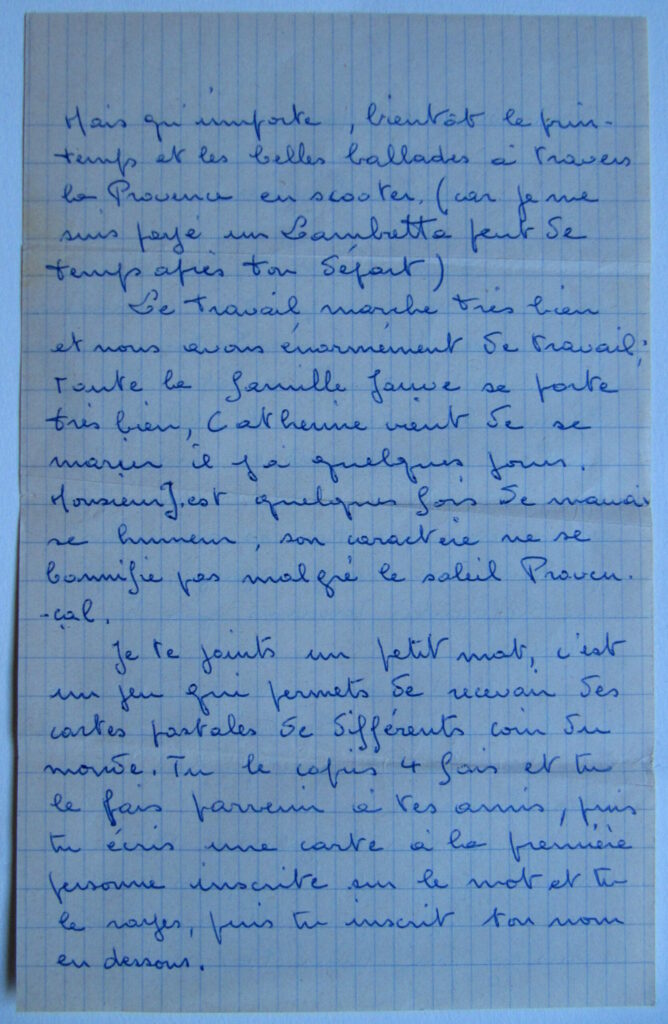 Mais qu'importe, bientôt le prin-
temps et les belles ballades à travers
la Provence en scooter. (car je me
suis payé un Lambretta peut de
temps après ton départ)
Le travail marche très bien
et nous avons énormément de travail;
Toute la famille Jauve se porte
très bien, Catherine vient de se
marier il y a quelques jours.
Monsieur J. est quelques fois de mauvai
se humeur, son caractère ne se
bonnifie pas malgré le soleil Proven.
-çal.
Je te joints un petit mot, c'est
un jeu qui permets de recevoir des
cartes postales de différents coin du
monde. Tu le copis 4 fois et tu
le fais parvenir à tes amis, puis
tu écris une carte à la première
personne inscrite sur le mot et tu
le rayes, puis tu inscrit ton nom
en dessous.